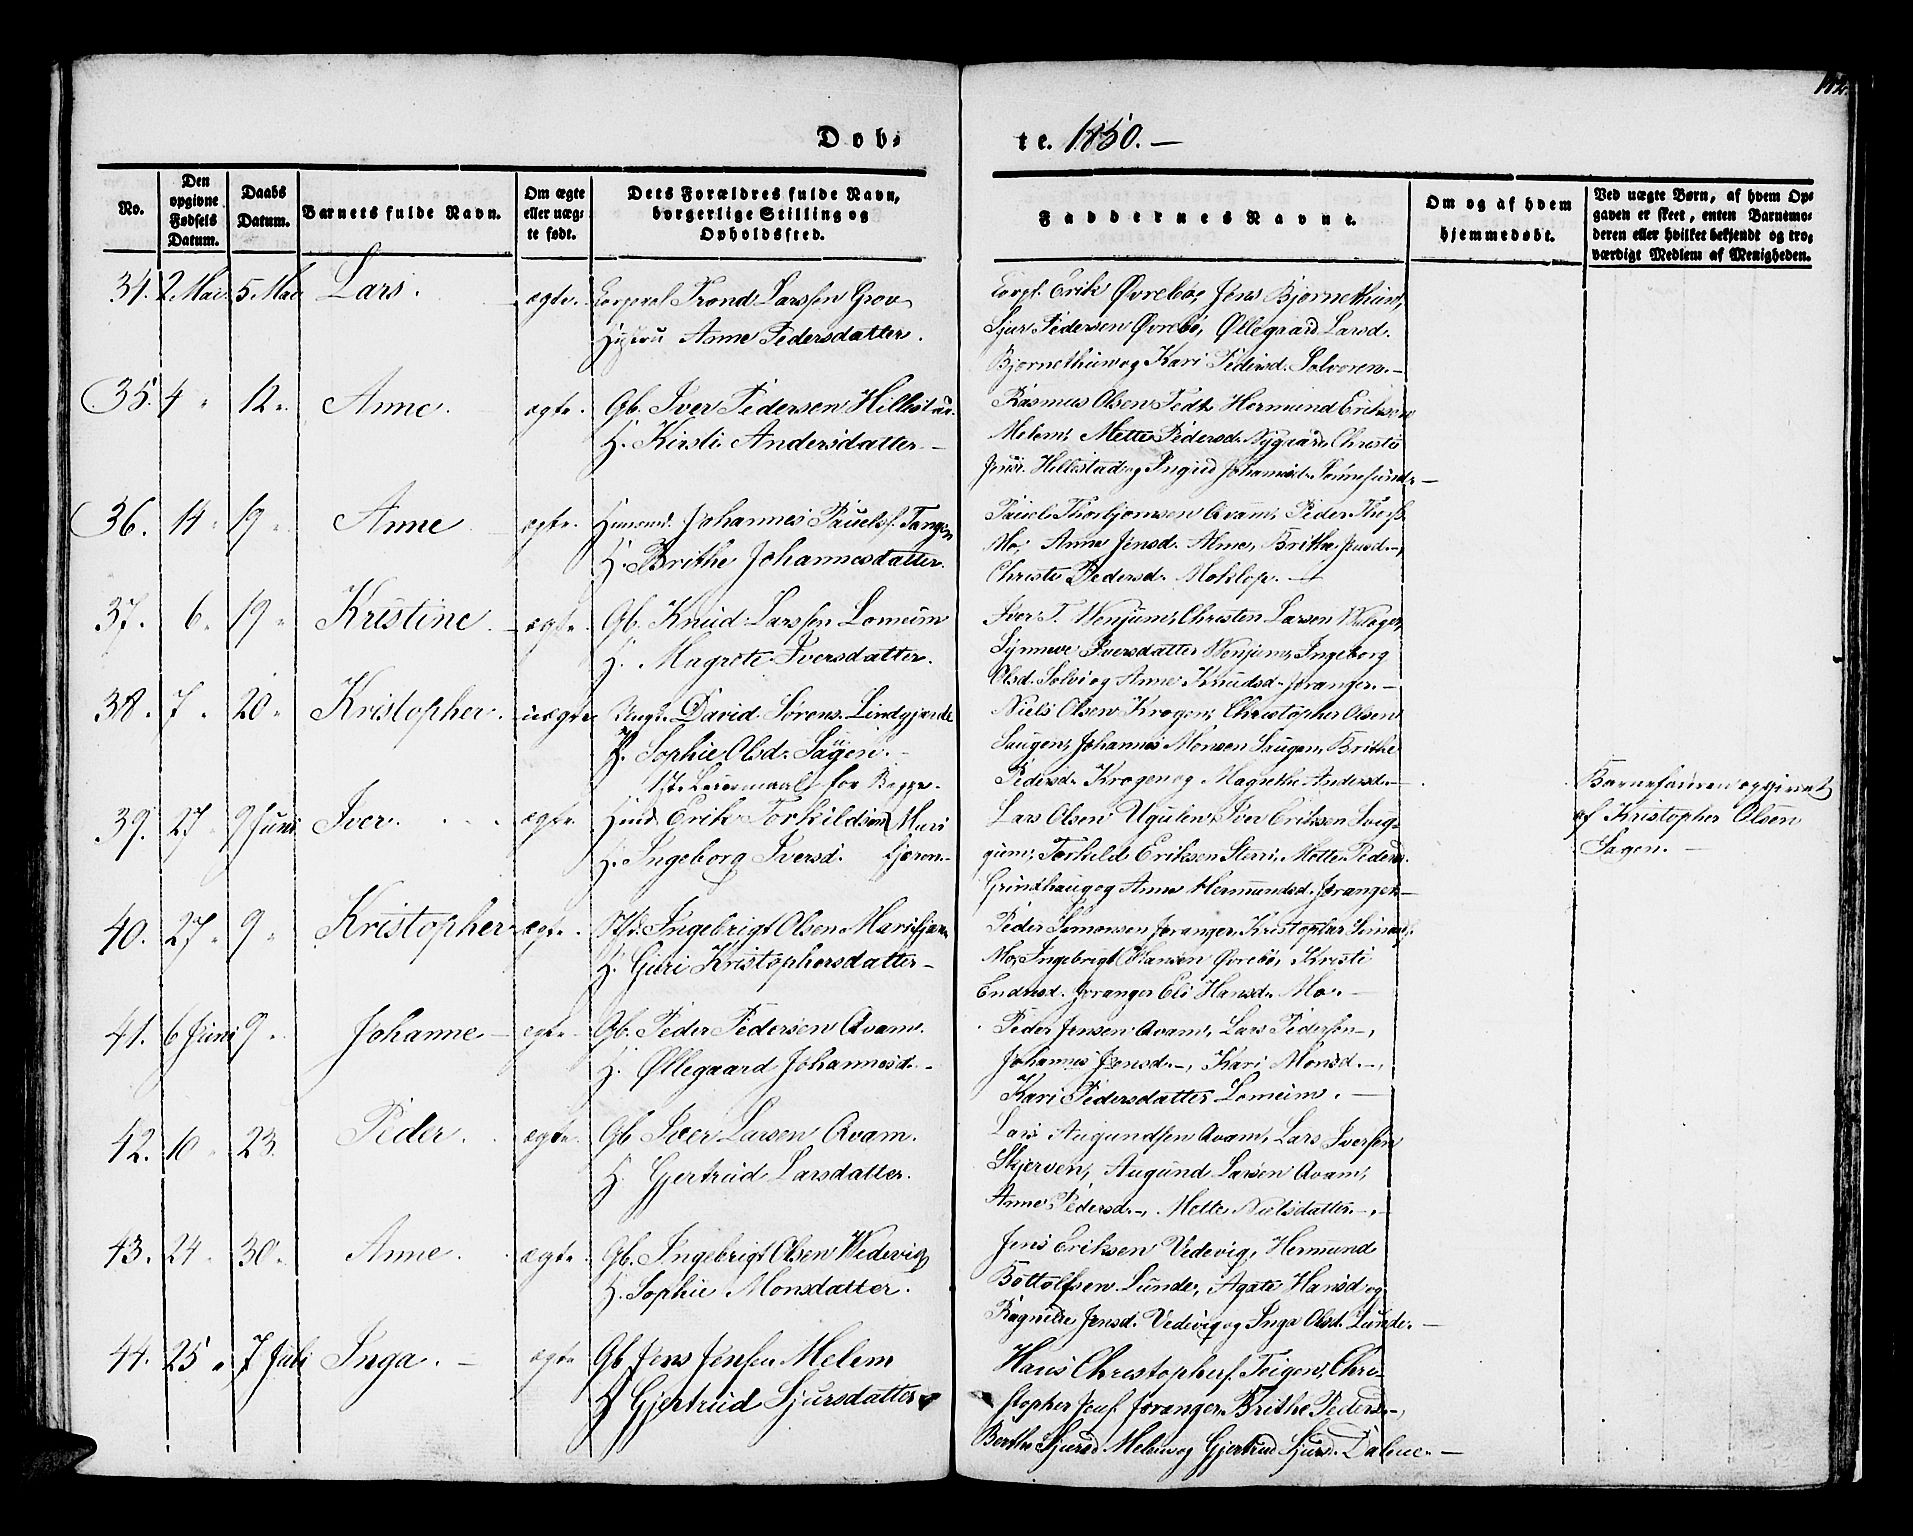 Døb-
te. 1850. —
No.
Den opgivne Fødsels Datum.
Daabs Datum.
Barnets fulde Navn.
Om ægte eller uægte født.
Dets Forældres fulde Navn, borgerlige Stilling og Opholdssted.
Faddernes Navne.
Om og af hvem hjemmedøbt.
Ved uægte Børn, af hvem Opgaven er skeet, enten Barnemoderen eller hvilket bekjendt og troværdigt Medlem af Menigheden.
34. 2 Mai 5 Mai Lars. ægte. Corporal Trond Larssen Grov
Hustru Anne Pedersdatter.
Corpl. Erik Øvrebø, Jens Bjørnethun,
Sjur Pedersen Øvrebø, Øllegaard Larsd.
Bjørnethun og Kari Pedersd. Solvoren. —
35. 4 " 12 " Anne. ægte. Gb. Iver Pedersen Hillestad.
H. Kirsti Andersdatter —
Rasmus Olsen Fedt, Hermund Eriksen
Melem, Mette Pedersd. Nygaard, Christi
Jensd. Hillestad og Ingrid Johannesd.
36. 14 " 19 " Anne ægte. Huusmd. Johannes Pauels. Tangen
H. Brithe Johannesdatter.
Pauel Thorbjørnsen Qvam, Peder
Mo, Anne Jensd. Alme, Brithe Jensd. —,
Christi Pedersd. Moklop. —
37. 6 " 19 " Kristine. ægte. Gb. Knud Larssen Lomeim
H. Magrete Iversdatter.
Iver T. Wenjum, Christen Larsen
Synneve Iversdatter Wenjum, Ingeborg
Olsd. Solvi og Anne Knudsd. Joranger. —
38. 7 " 20 " Kristopher. uægte Ungk. David Sørens. Lindgjerde
P. Sophie Olsd. Sagen. —
1st. Leiermaal for Begge.
Niels Olsen Krogen, Christopher Olsen
Saugen, Johannes Monsen Saugen, Brithe
Pedersd. Krogen og Magrethe Andersd. —
Barnefaderen opgivet
af Kristopher Olsen
Sagen. —
39. 27 " 9 Juni Iver. ægte. Huusd. Erik Torkildsen Mari
H. Ingeborg Iversd. fjæren
Lars Olsen Ugulen, Iver Eriksen Svig-
gum, Torkild Eriksen Steen, Mette Pedersd.
Grindhaug og Anne Hermundsd. Joranger —
40. 27 " 9 " Kristopher ægte. Ingebrigt Olsen Marifjæren
H. Guri Kristophersdatter —
Peder Simonsen Joranger, Kristopher Simons.
Mo, Ingebrigt Hansen Øvrebø, Kristi
Endresd. Joranger Eli Hansd. Mo. —
41. 6 Juni 9 " Johanne — ægte. Gb. Peder Pedersen Qvam.
H. Øllegaard Johannesd. —
Peder Jensen Qvam, Lars Pedersen —,
Johannes Jensd. —, Kari Monsd. —,
Kari Pedersdatter Lomeim. —
42. 10 " 23. Peder. ægte. Gb Iver Larsen Qvam.
H. Gjertrud Larsdatter.
Lars Augundsen Qvam, Lars Iversen
Skjerven, Augund Larsen Qvam,
Anne Pedersd. —, Mette Nielsdatter. —, —
43. 24 " 30 " Anne. ægte. Gb. Ingebrigt Olsen Wedevig
H. Sophie Monsdatter.
Jens Eriksen Vedevig, Hermund
Bottolfsen Lunde, Agate Hansd og
Ragnilde Jensd. Vedevig og Inga Olsd. Lunde. —
44. 25 " 7 Juli Inga. — ægte Gb Jens Jensen Melem
H Gjertrud Sjursdatter
Hans Christophers. Teigen, Chri-
stopher Jens. Joranger, Brithe Peders. —,
Berthe Sjursd Melem og Gjertrud Sjursd. Dalene. —